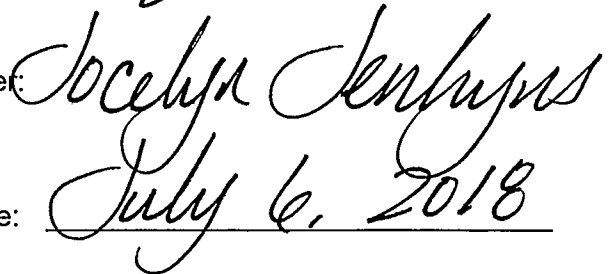 er: Jocelyn Jenkyns
e: July 6, 2018